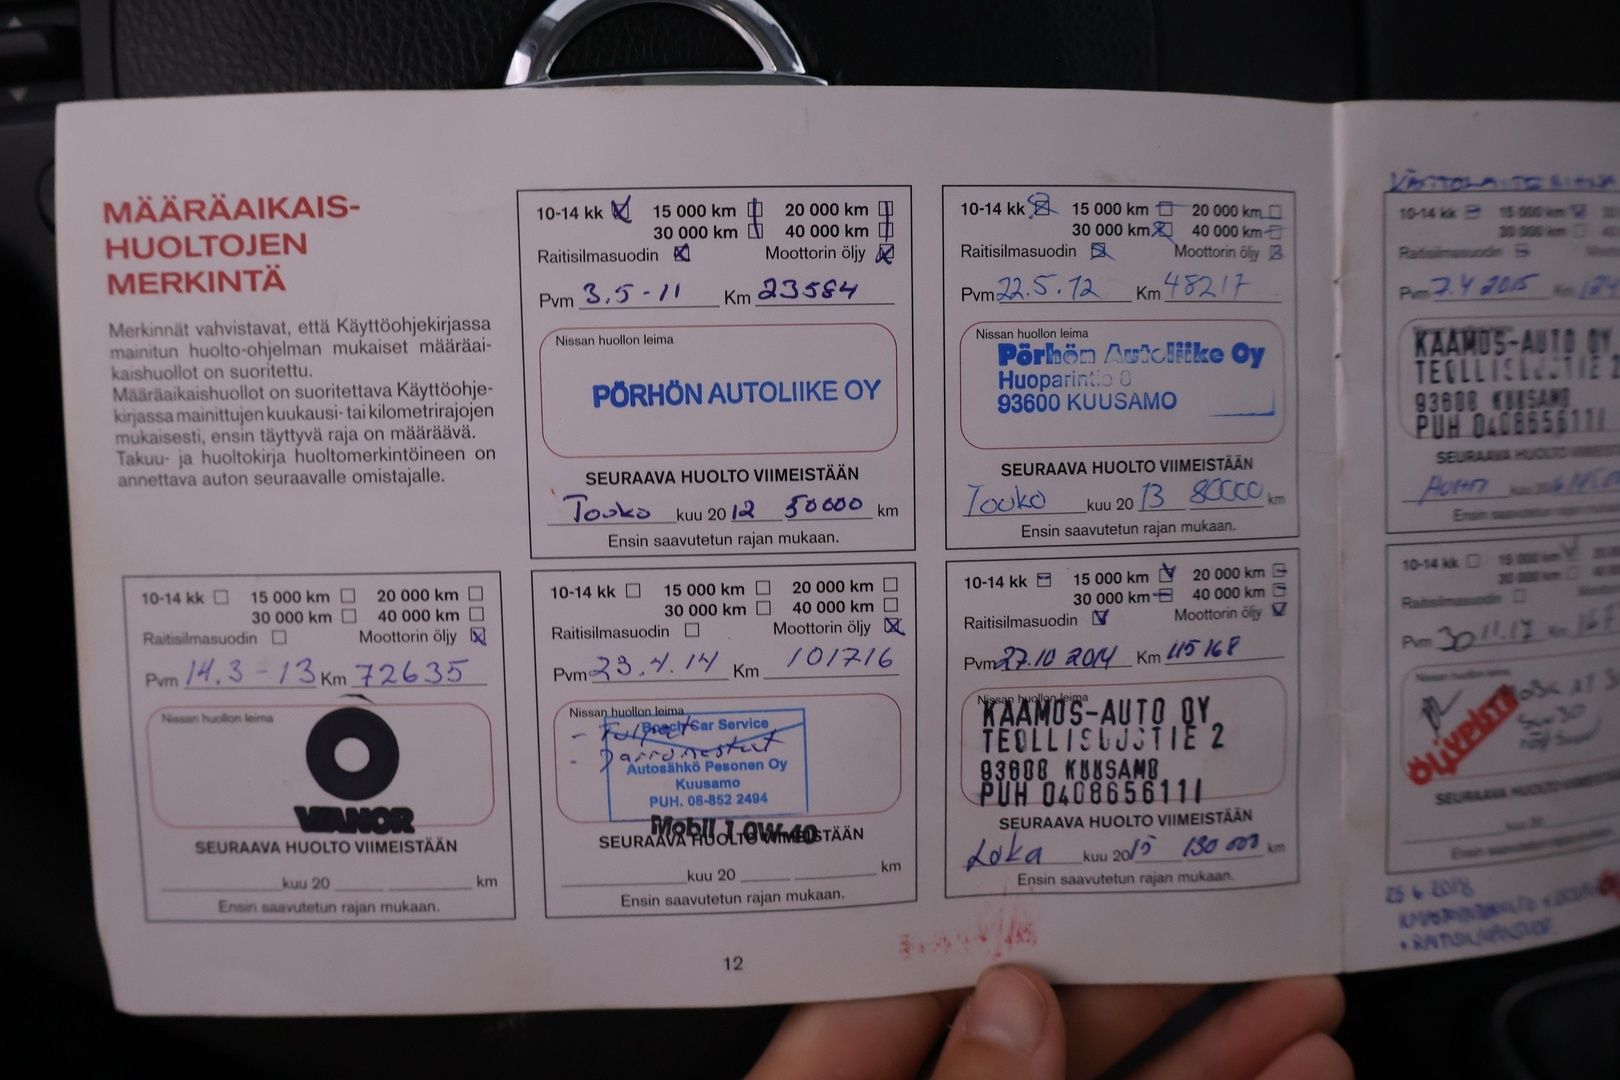 MÄÄRÄAIKAIS-
HUOLTOJEN
MERKINTÄ
Merkinnät vahvistavat, että Käyttöohjekirjassa
mainitun huolto-ohjelman mukaiset määräai-
kaishuollot on suoritettu.
Määräaikaishuollot on suoritettava Käyttöohje-
kirjassa mainittujen kuukausi- tai kilometrirajojen
mukaisesti, ensin täyttyvä raja on määräävä.
Takuu- ja huoltokirja huoltomerkintöineen on
annettava auton seuraavalle omistajalle.
10-14 kk 15 000 km 20 000 km
30 000 km 40 000 km
Raitisilmasuodin Moottorin öljy
Pvm 3.5-11 Km 23584
Nissan huollon leima
PÖRHÖN AUTOLIIKE OY
SEURAAVA HUOLTO VIIMEISTÄÄN
Touko kuu 20 12 50000 km
Ensin saavutetun rajan mukaan.
10-14 kk 15 000 km 20 000 km
30 000 km 40 000 km
Raitisilmasuodin Moottorin öljy
Pvm 22.5.12 Km 48217
Nissan huollon leima
Pörhön Autoliike Oy
Huoparintie 8
93600 KUUSAMO
SEURAAVA HUOLTO VIIMEISTÄÄN
Touko kuu 20 13 80000 km
Ensin saavutetun rajan mukaan.
10-14 kk 15 000 km 20 000 km
30 000 km 40 000 km
Raitisilmasuodin Moottorin öljy
Pvm 14.3-13 Km 72635
Nissan huollon leima
VIANOR
SEURAAVA HUOLTO VIIMEISTÄÄN
kuu 20 km
Ensin saavutetun rajan mukaan.
10-14 kk 15 000 km 20 000 km
30 000 km 40 000 km
Raitisilmasuodin Moottorin öljy
Pvm 23.4.14 Km 101716
Nissan huollon leima
Bosch Car Service
Autosähkö Pesonen Oy
Kuusamo
PUH. 08-852 2494
Mobil 1 0W-40
SEURAAVA HUOLTO VIIMEISTÄÄN
kuu 20 km
Ensin saavutetun rajan mukaan.
10-14 kk 15 000 km 20 000 km
30 000 km 40 000 km
Raitisilmasuodin Moottorin öljy
Pvm 27.10 2014 Km 115168
Nissan huollon leima
KAAMOS-AUTO OY
TEOLLISUUSTIE 2
93600 KUUSAMO
PUH 0408656111
SEURAAVA HUOLTO VIIMEISTÄÄN
Loka kuu 20 15 130 000 km
Ensin saavutetun rajan mukaan.
12
10-14 kk 15 000 km
30 000 km
Raitisilmasuodin
Pvm 7.4 2015 Km
KAAMOS-AUTO OY
TEOLLISUUSTIE 2
93600 KUUSAMO
PUH 0408656111
SEURAAVA HUOLTO
kuu 20
Ensin saavutetun rajan
10-14 kk 15 000 km
30 000 km
Raitisilmasuodin
Pvm 30.11.17 Km
Nissan huollon leima
SEURAAVA HUOLTO
kuu 20
Ensin saavutetun rajan
25.6.2018